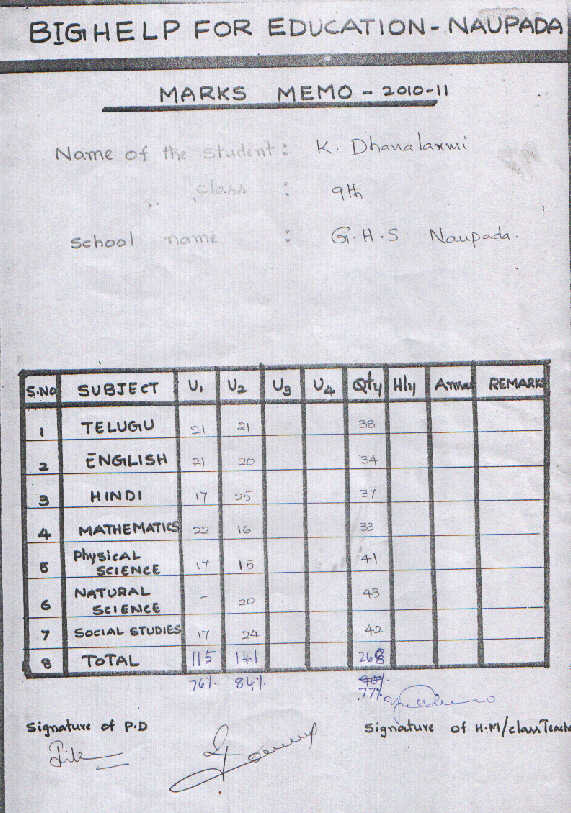 BIGHELP FOR EDUCATION - NAUPADA
MARKS MEMO - 2010-11
Name of the student : K. Dhanalaxmi
class : 9th
School name : G.H.S Naupada.
S.NO SUBJECT U1 U2 U3 U4 Qtly Hly Annu REMARK
1 TELUGU 21 21 38
2 ENGLISH 21 20 34
3 HINDI 17 25 37
4 MATHEMATICS 22 16 33
5 Physical SCIENCE 17 15 41
6 NATURAL SCIENCE - 20 43
7 SOCIAL STUDIES 17 24 42
8 TOTAL 115 141 268
76% 84%
77%
Signature of P.D Signature of H.M/class Teache